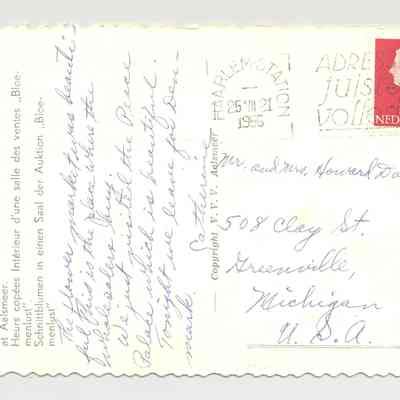 at Aalsmeer.
Heurs copées Intérieur d'une salle des ventes „Bloe-
menlust"
Schnittblumen in einen Saal der Auktion „Bloe-
menlust"
The flower market was beauti-
ful. This is the place where the
wholesalers buy.
We just visited the Peace
Palace which is beautiful.
Tonight we leave for Den-
mark
Catherine
Copyright V. V. V. Aalsmeer
HAARLEM-STATION
25 VII 21
1956
ADRES
juist
voll
NED
Mr. and Mrs. Howard
508 Clay St.
Greenville,
Michigan
U. S. A.